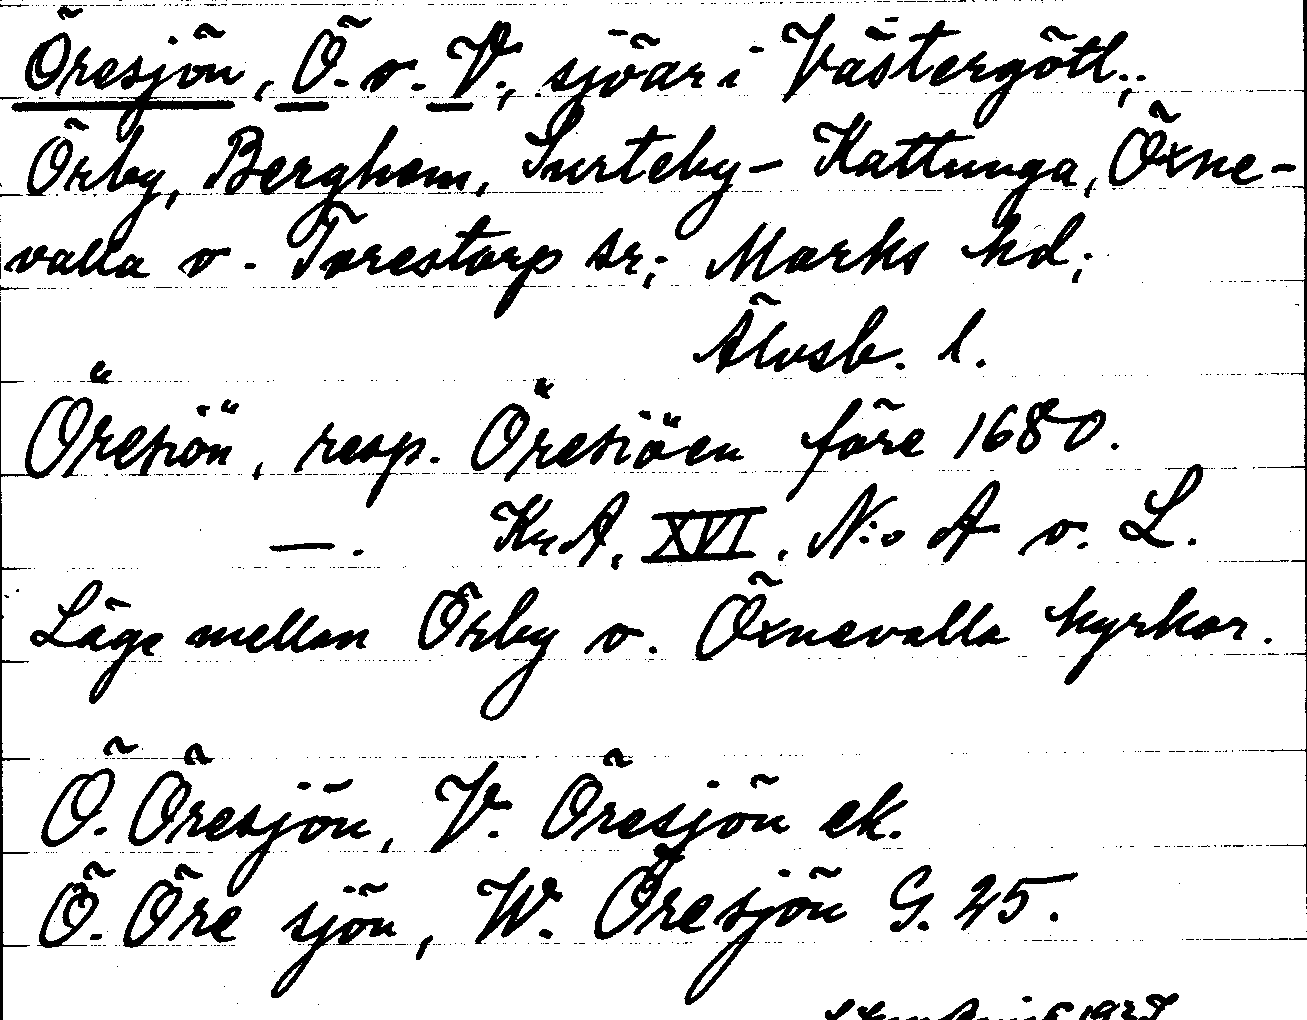 Öresjön, Ö. o. V., sjöar i Västergötl.;
Örby, Berghem, Surteby-Kattunga, Öxne-
valla o. Torestorp sr; Marks hd;
Älvsb. l.
Öresiön, resp. Öresiöen före 1680.
—. KrA, XVI, N:o A o. L.
Läge mellan Örby o. Öxnevalla kyrkor.
Ö. Öresjön, V. Öresjön ek.
Ö. Öre sjön, W. Öresjön G. 25.